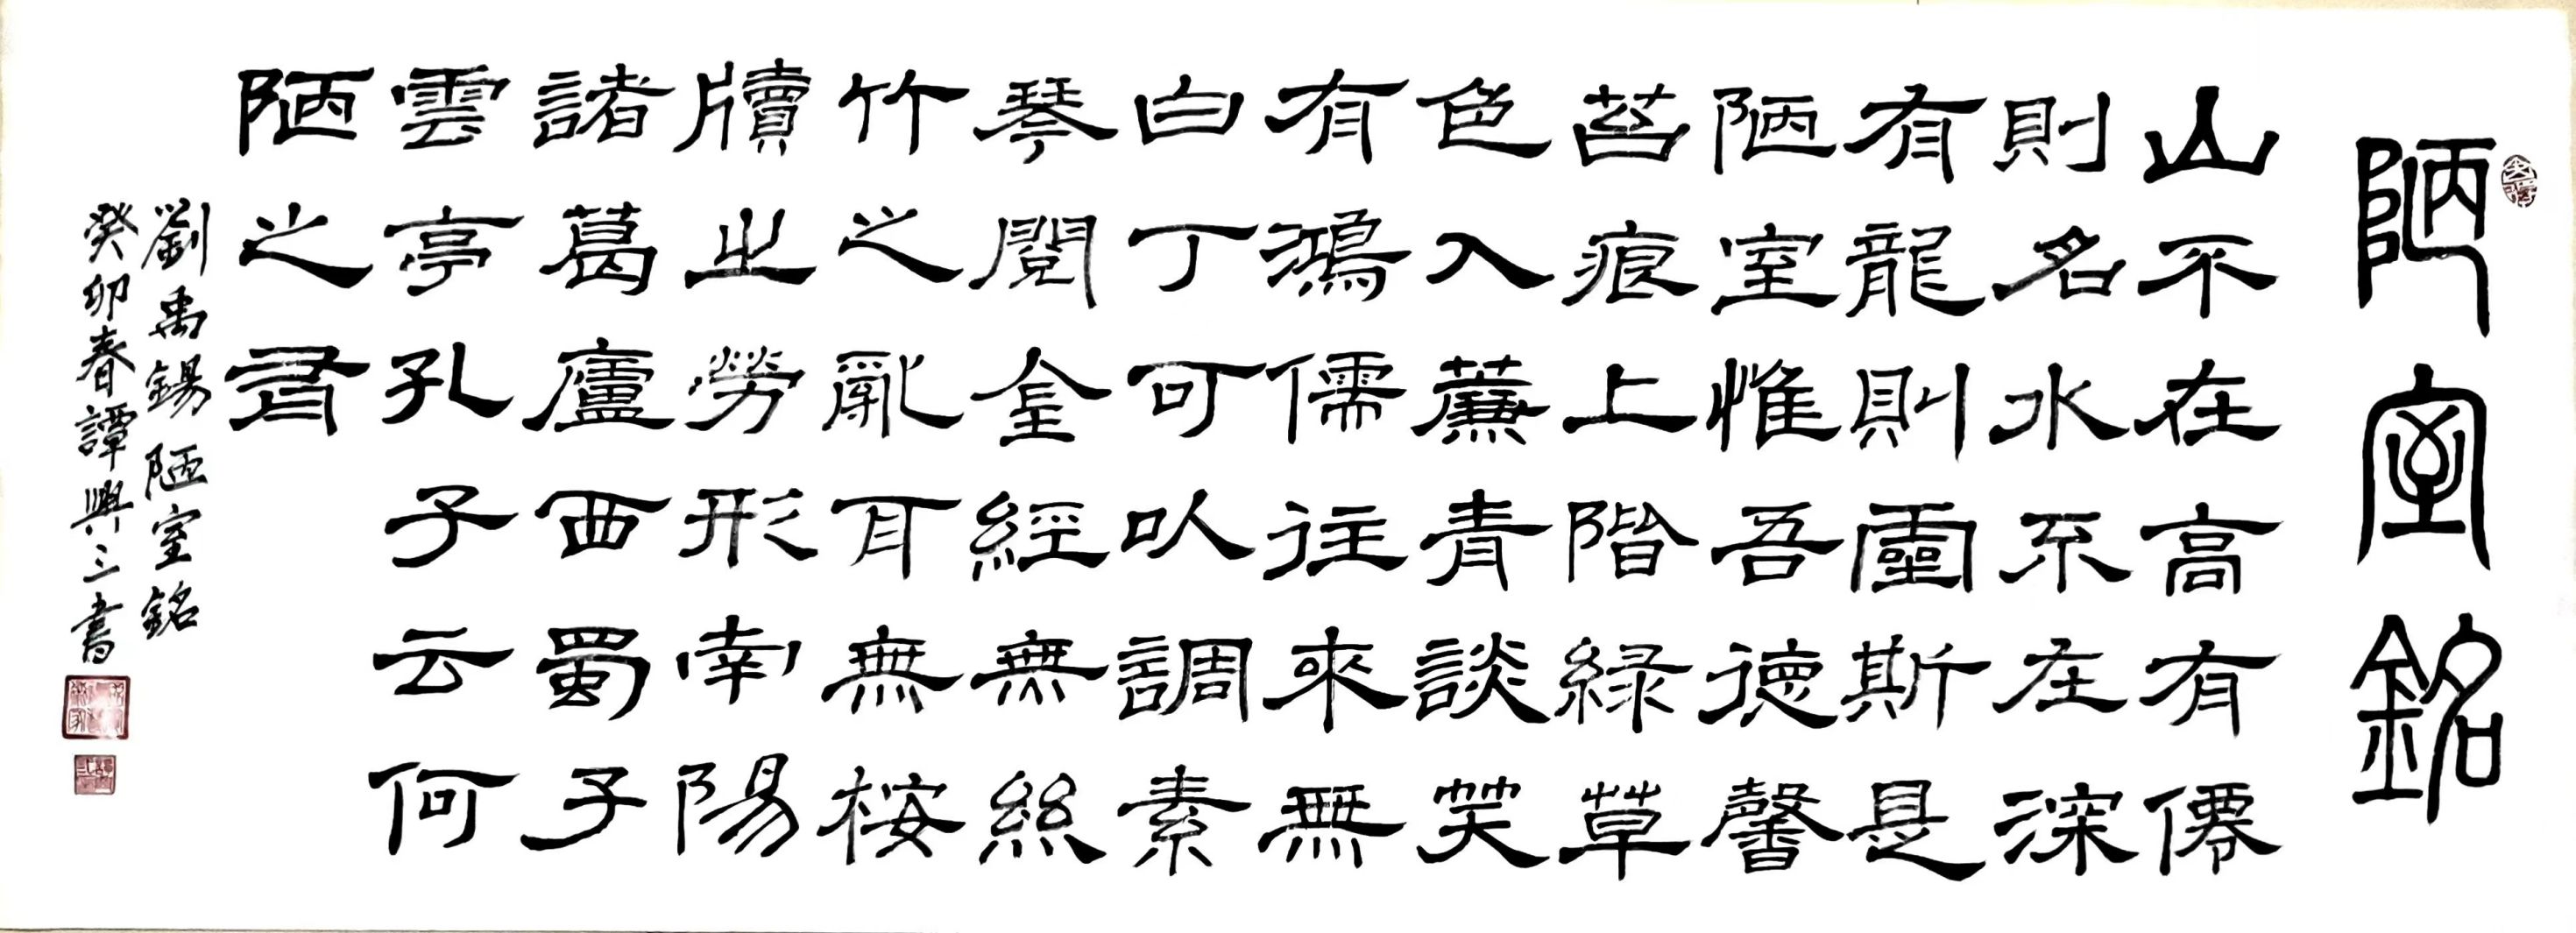 陋室銘
山不在高有僊
則名水不在深
有龍則靈斯是
陋室惟吾德馨
苔痕上階緑草
色入薕青談笑
有鴻儒往來無
白丁可㕥調素
琴閱金經無絲
竹之亂耳無桉
牘之勞形南陽
諸葛廬西蜀子
雲亭孔子云何
陋之有
劉禹錫陋室銘
癸卯春譚興三書